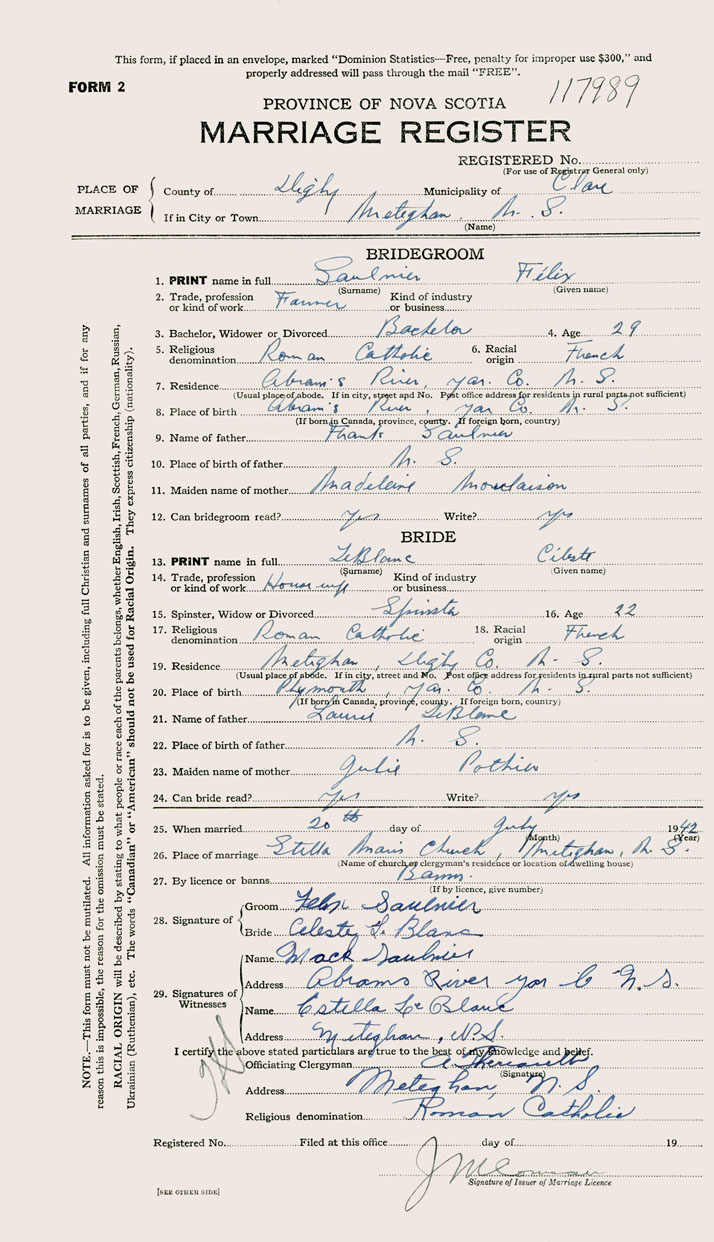 This form, if placed in an envelope, marked "Dominion Statistics—Free, penalty for improper use $300," and
properly addressed will pass through the mail "FREE".
FORM 2
117989
PROVINCE OF NOVA SCOTIA
MARRIAGE REGISTER
REGISTERED No.
(For use of Registrar General only)
PLACE OF MARRIAGE
County of Digby Municipality of Clare
If in City or Town Meteghan, N. S.
(Name)
BRIDEGROOM
1. PRINT name in full Saulnier Félix
(Surname) (Given name)
2. Trade, profession or kind of work Farmer Kind of industry or business
3. Bachelor, Widower or Divorced Bachelor 4. Age 29
5. Religious denomination Roman Catholic 6. Racial origin French
7. Residence Abram's River, Yar. Co. N. S.
(Usual place of abode. If in city, street and No. Post office address for residents in rural parts not sufficient)
8. Place of birth Abram's River, Yar Co. N. S.
(If born in Canada, province, county. If foreign born, country)
9. Name of father Frank Saulnier
10. Place of birth of father N. S.
11. Maiden name of mother Madeleine Mouclaison
12. Can bridegroom read? Yes Write? Yes
BRIDE
13. PRINT name in full LeBlanc Céleste
(Surname) (Given name)
14. Trade, profession or kind of work House wife Kind of industry or business
15. Spinster, Widow or Divorced Spinster 16. Age 22
17. Religious denomination Roman Catholic 18. Racial origin French
19. Residence Meteghan, Digby Co. N. S.
(Usual place of abode. If in city, street and No. Post office address for residents in rural parts not sufficient)
20. Place of birth Plymouth, Yar. Co. N. S.
(If born in Canada, province, county. If foreign born, country)
21. Name of father LeBlanc
22. Place of birth of father N. S.
23. Maiden name of mother Julie Pothier
24. Can bride read? Yes Write? Yes
25. When married 20th day of July 1942
(Month) (Year)
26. Place of marriage Stella Maris Church, Meteghan, N. S.
(Name of church or clergyman's residence or location of dwelling house)
27. By licence or banns Banns
(If by licence, give number)
28. Signature of
Groom Felix Saulnier
Bride Celeste L. Blanc
29. Signatures of Witnesses
Name Mack Saulnier
Address Abrams River Yar Co N. S.
Name Estella Le Blanc
Address Meteghan, N.S.
I certify the above stated particulars are true to the best of my knowledge and belief.
Officiating Clergyman Theriault
(Signature)
Address Meteghan, N. S.
Religious denomination Roman Catholic
Registered No. Filed at this office day of 19
Signature of Issuer of Marriage Licence
[SEE OTHER SIDE]
NOTE.—This form must not be mutilated. All information asked for is to be given, including full Christian and surnames of all parties, and if for any
reason this is impossible, the reason for the omission must be stated.
RACIAL ORIGIN will be described by stating to what people or race each of the parents belongs, whether English, Irish, Scottish, French, German, Russian,
Ukrainian (Ruthenian), etc. The words "Canadian" or "American" should not be used for Racial Origin. They express citizenship (nationality).